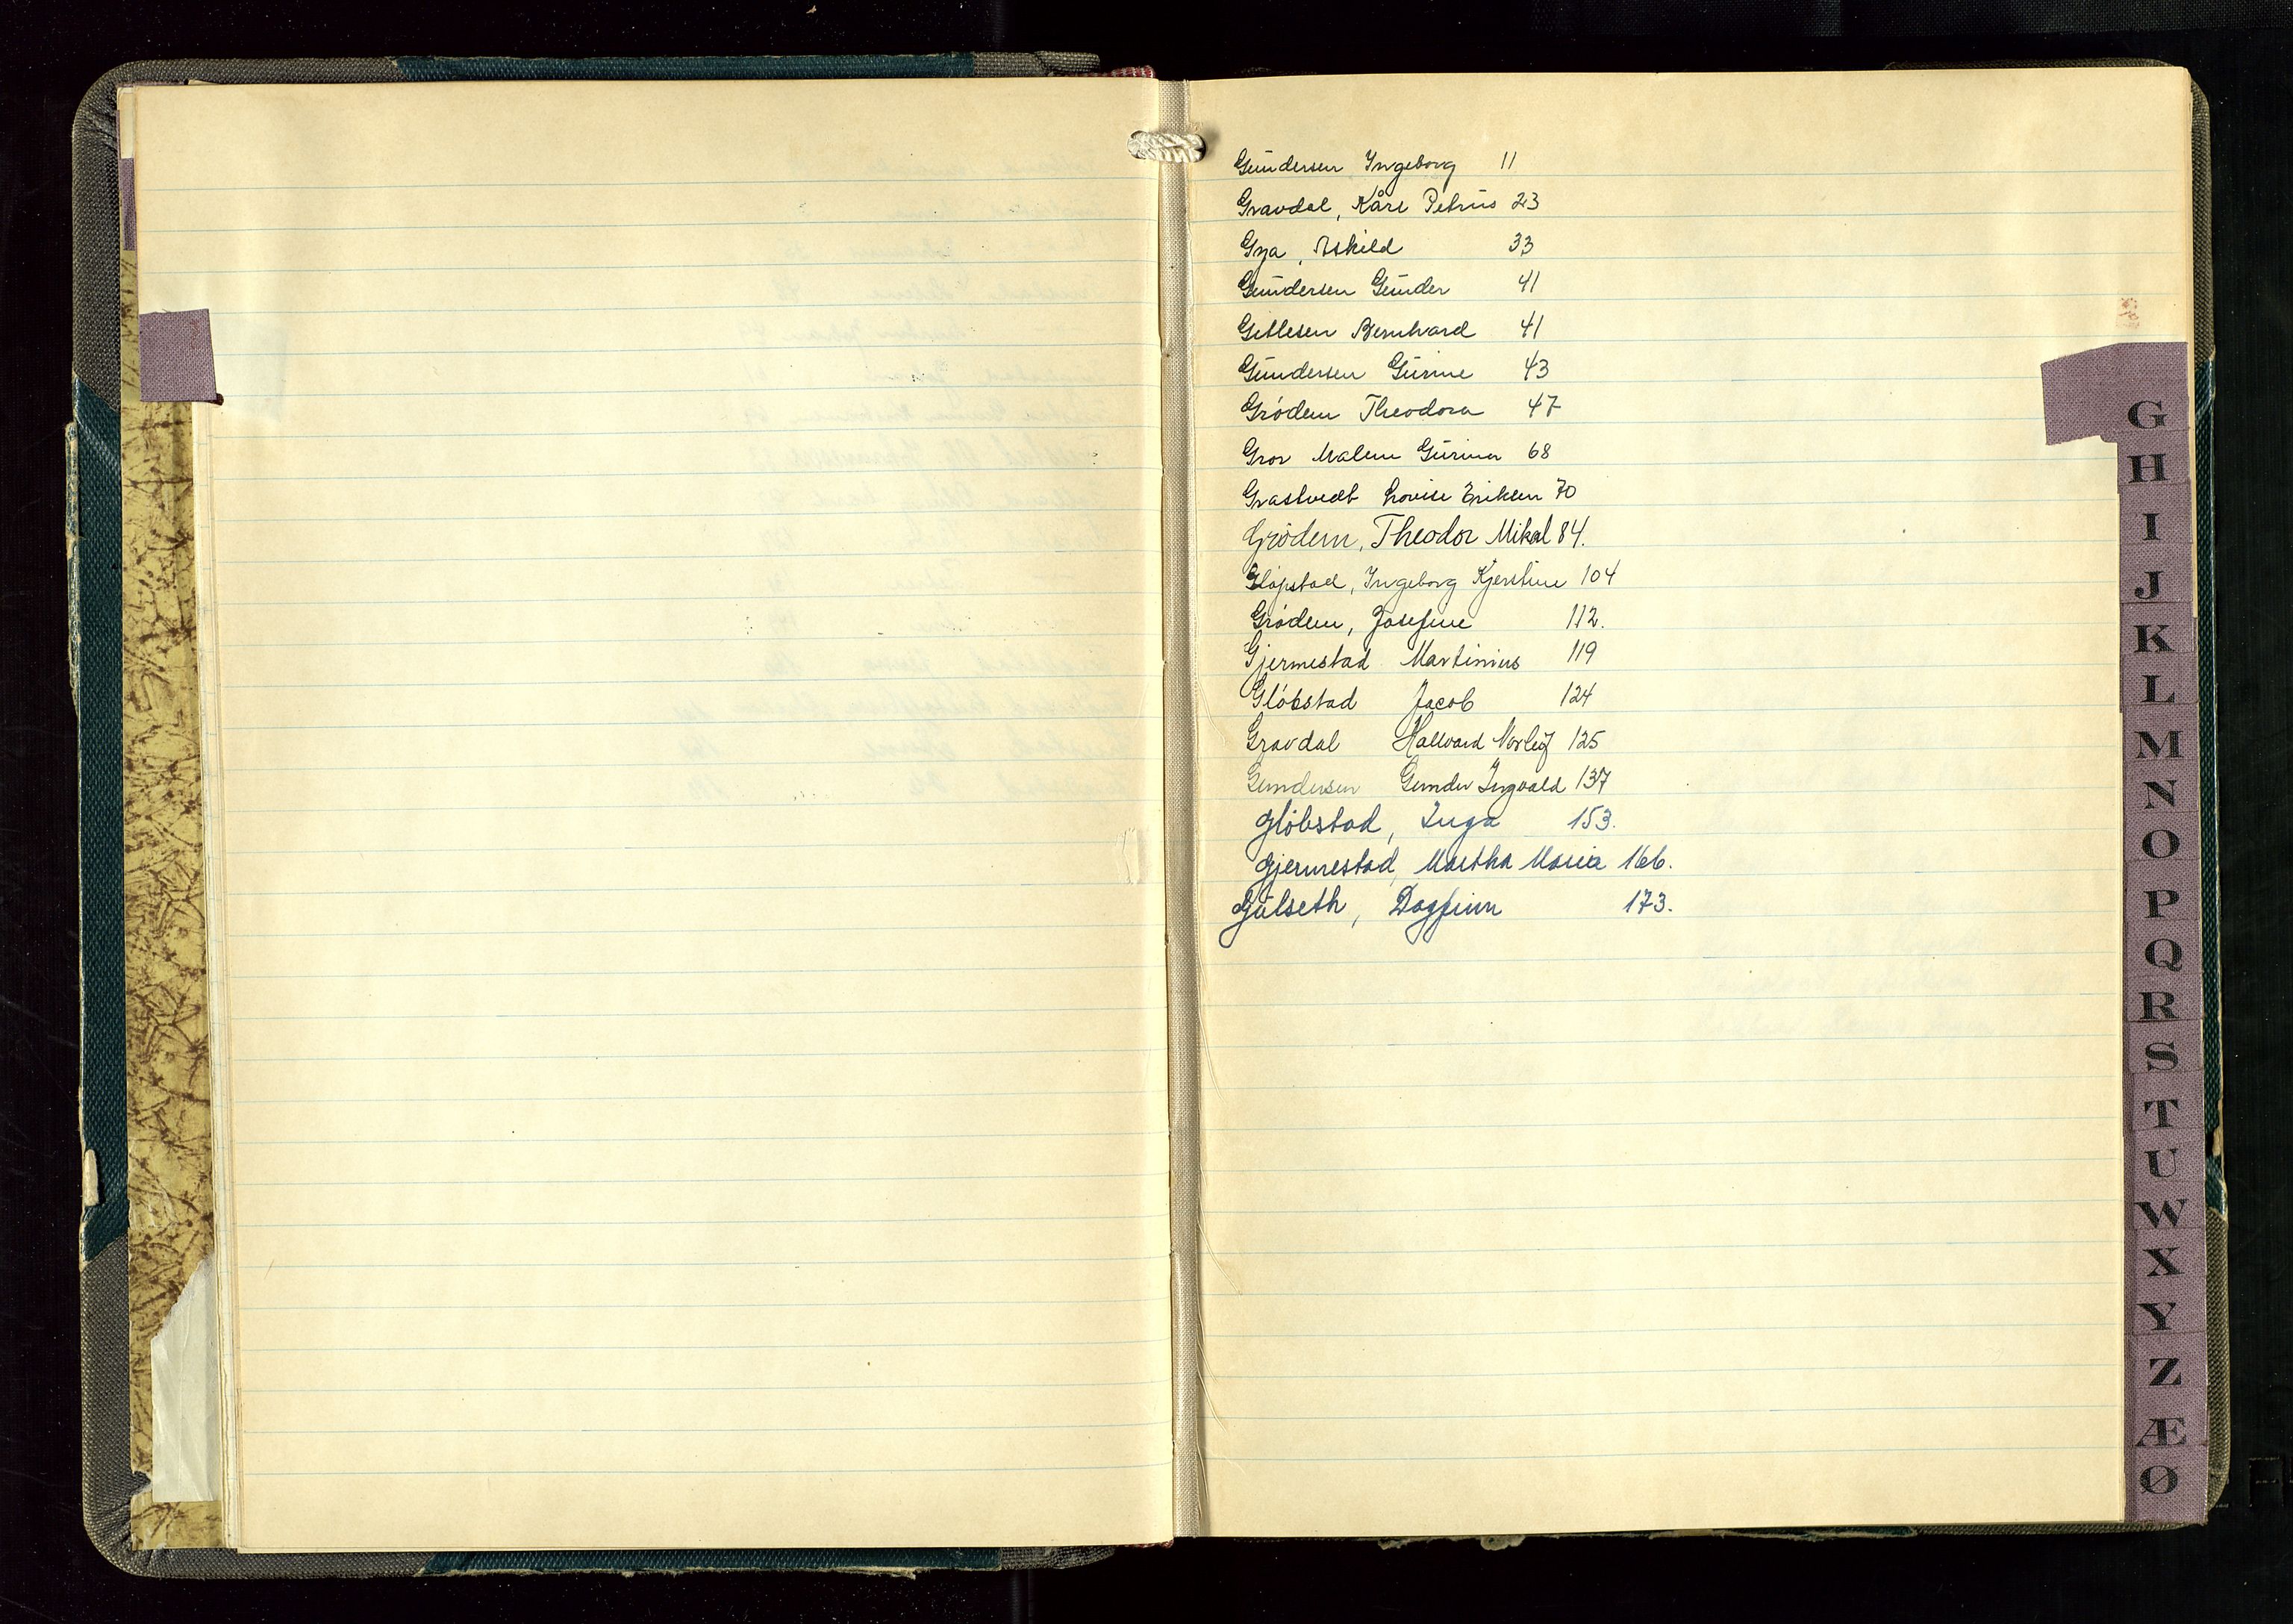 Gundersen Ingeborg 11
Gravdal, Kåre Petrus 23
Gya, Askild 33
Gundersen Gunder 41
Gitlesen Bernhard 41
Gundersen Gurine 43
Grödem Theodora 47
Gror Malene Gurina 68
Grastvedt Lovise Eriksen 70
Grödem, Theodor Mikal 84.
Gløpstad, Ingeborg Kjerstine 104
Grödem, Josefine 112.
Gjermestad Martinius 119
Glöbstad Jacob 124
Gravdal Hallvard Norleif 125
Gundersen Gunder Ingvald 137
Glöbstad, Inga 153.
Gjermestad, Martha Maria 166.
Gulseth, Dagfinn 173.
G
H
I
J
K
L
M
N
O
P
Q
R
S
T
U
W
X
Y
Z
Æ
Ø